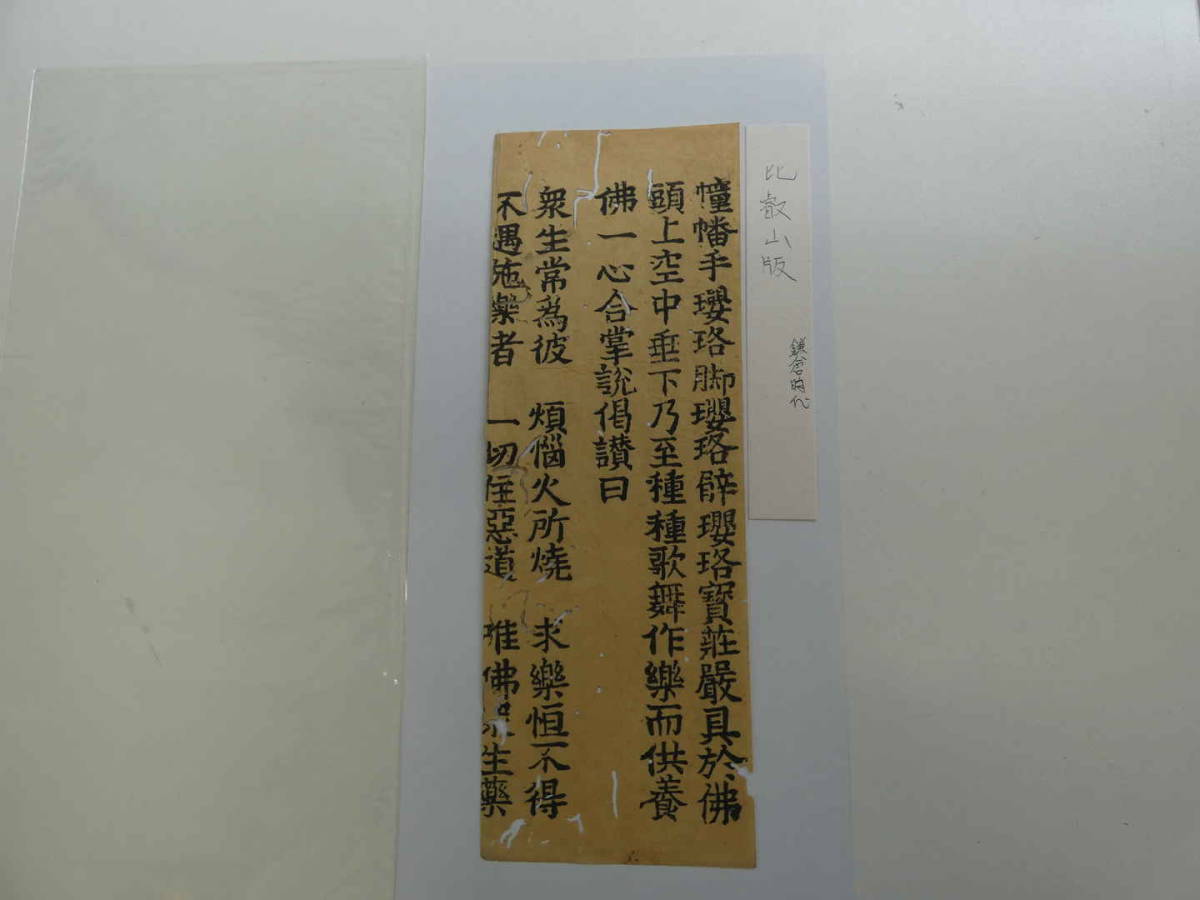 比叡山版
鎌倉時代
幢幡手瓔珞脚瓔珞臂瓔珞寶莊嚴具於佛
頭上空中垂下乃至種種歌舞作樂而供養
佛一心合掌說偈讃曰
衆生常為彼　煩惱火所燒　求樂恒不得
不遇施藥者　一切住惡道　唯佛衆生藥